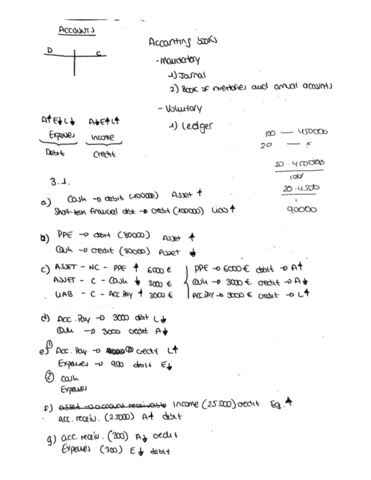 Accounts
D C
A↑E↓L↓ A↓E↑L↑
Expenses Income
Debit Credit
Accounting books
- Mandatory
1) Journal
2) Book of inventories and annual accounts
- Voluntary
1) Ledger
100 — 450000
20 — x
20 · 450000
100
20 · 4500
1
90000
3.1.
a) Cash → debit (100000) Asset ↑
Short-term financial debt → credit (100000) Liab ↑
b) PPE → debit (80000) Asset ↑
Cash → credit (80000) Asset ↓
c) ASSET - NC - PPE ↑ 6000 € PPE → 6000 € debit → A↑
ASSET - C - Cash ↓ 3000 € Cash → 3000 € credit → A↓
LIAB - C - Acc. Pay ↑ 3000 € Acc. Pay → 3000 € credit → L↑
d) Acc. Pay → 3000 debit L↓
Cash → 3000 credit A↓
e) ① Acc. Pay → credit L↑
Expenses → 900 debit E↓
② Cash
Expenses
f) Asset → account receivable Income (25.000) credit Eq. ↑
acc. receiv. (25000) A↑ debit
g) acc. receiv. (300) A↓ credit
Expenses (300) E↓ debit